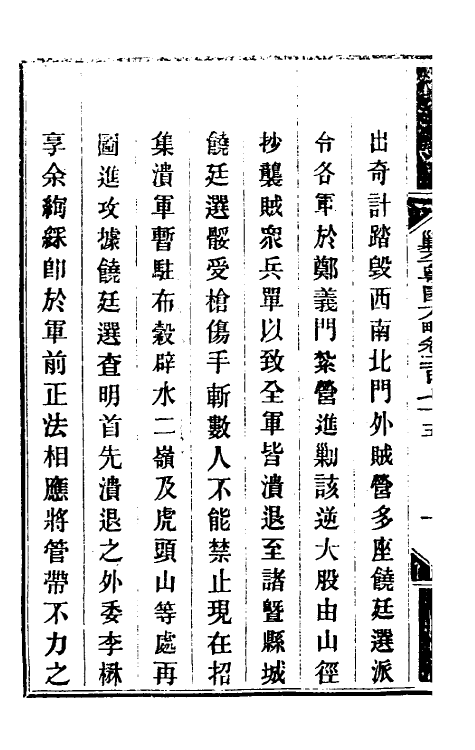 出奇計踏毀西南北門外賊營多座饒廷選派
令各軍於鄭義門紮營進剿該逆大股由山徑
抄襲賊眾兵單以致全軍皆潰退至諸暨縣城
饒廷選骽受槍傷手斬數人不能禁止現在招
集潰軍暫駐布穀辟水二嶺及虎頭山等處再
圖進攻據饒廷選查明首先潰退之外委李楙
享余絢綵即於軍前正法相應將管帶不力之